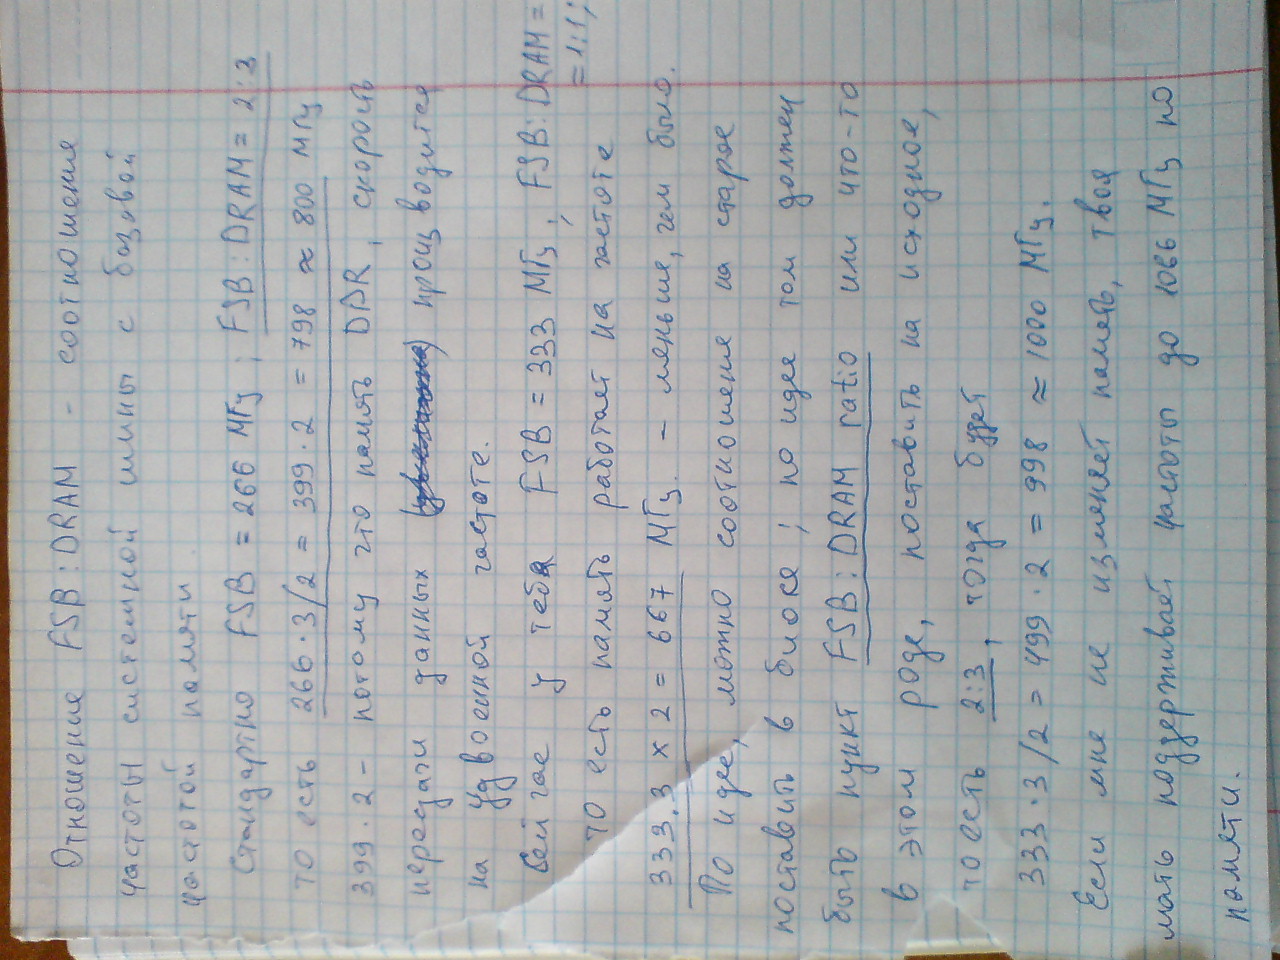 Отношение FSB:DRAM - соотношение
частоты системной шины с базовой
частотой памяти
Стандартно FSB = 266 МГц; FSB:DRAM = 2:3
то есть 266·3/2 = 399·2 = 798 ≈ 800 МГц
399·2 - потому что память DDR, скорость
передачи данных производится
на удвоенной частоте.
Сейчас у тебя FSB = 333 МГц; FSB:DRAM =
= 1:1;
то есть память работает на частоте
333.3 x 2 = 667 МГц. - меньше, чем было.
По идее, можно соотношение на старое
поставить в биосе; по идее там должен
быть пункт FSB:DRAM ratio или что-то
в этом роде, поставить на исходное,
то есть 2:3, тогда будет
333·3/2 = 499·2 = 998 ≈ 1000 МГц.
Если мне не изменяет память, твоя
мать поддерживает частоты до 1066 МГц по
памяти.